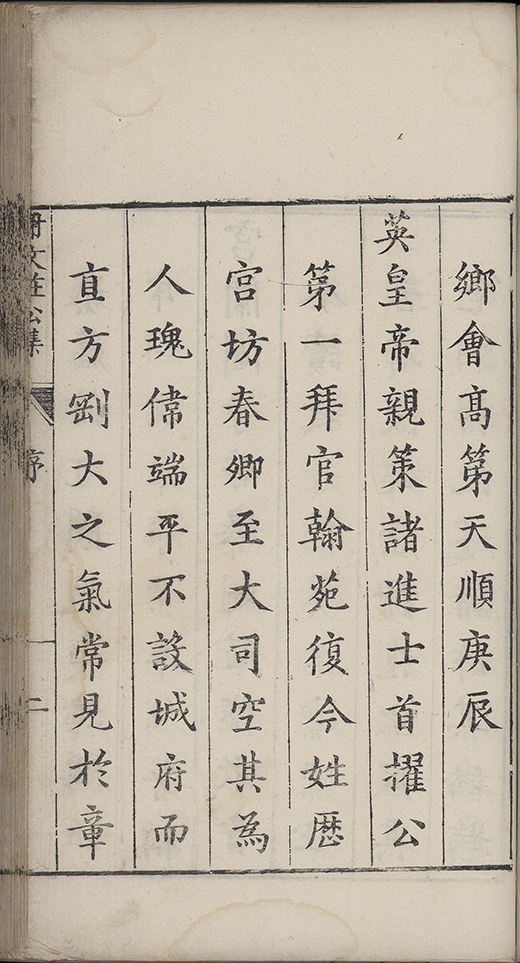 鄉會髙第天順庚辰
英皇帝親策諸進士首擢公
第一拜官翰苑復今姓歴
宫坊春卿至大司空其為
人瑰偉端平不設城府而
直方剛大之氣常見於章
文莊公集
序
二